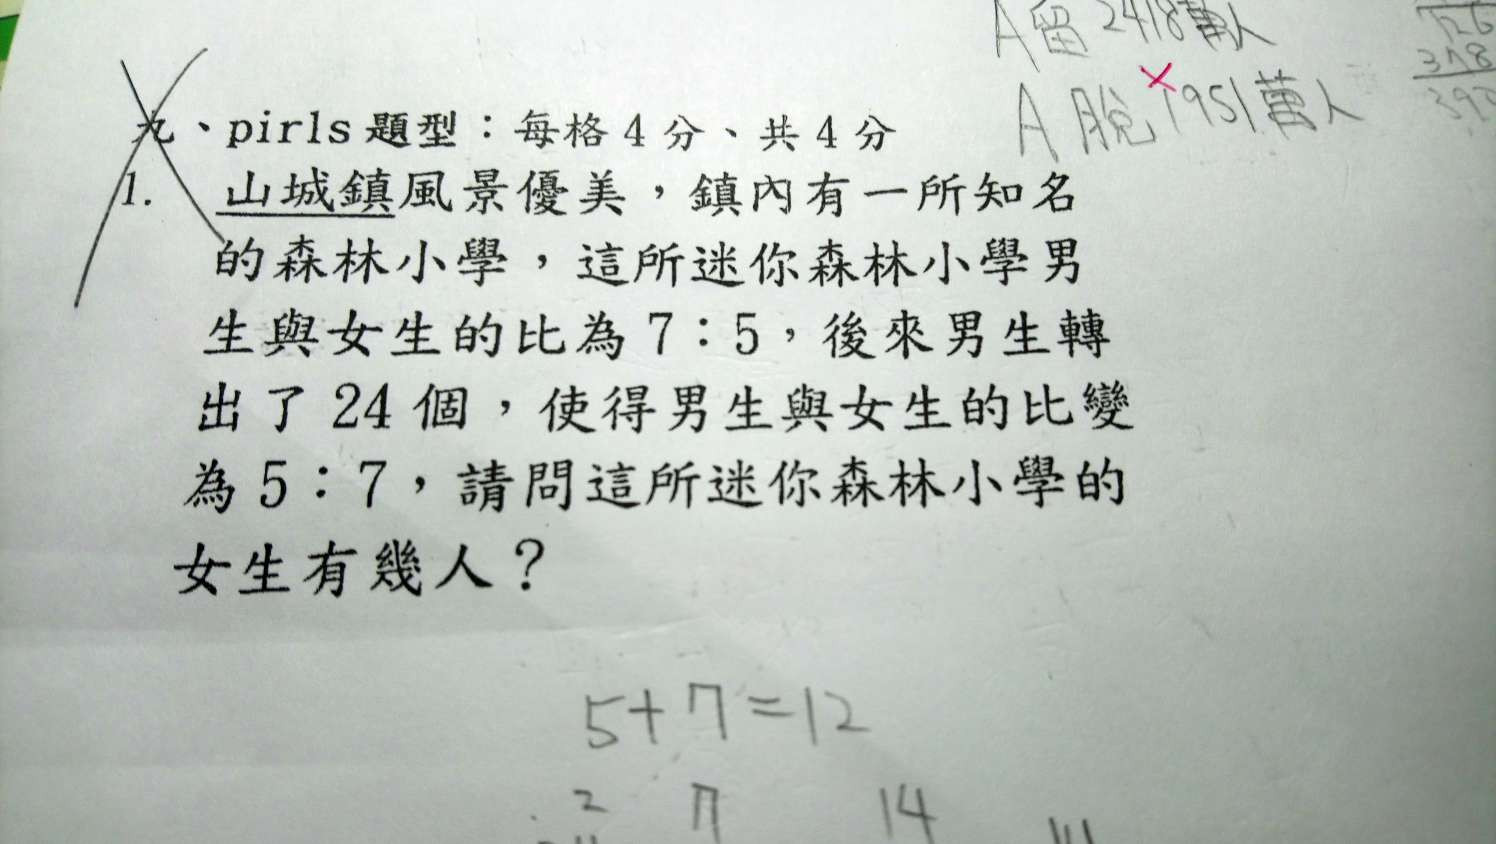 A留2418萬人
A脫1951萬人
九、pirls題型：每格4分、共4分
1. 山城鎮風景優美，鎮內有一所知名
的森林小學，這所迷你森林小學男
生與女生的比為7：5，後來男生轉
出了24個，使得男生與女生的比變
為5：7，請問這所迷你森林小學的
女生有幾人？
5+7=12
2 7 14